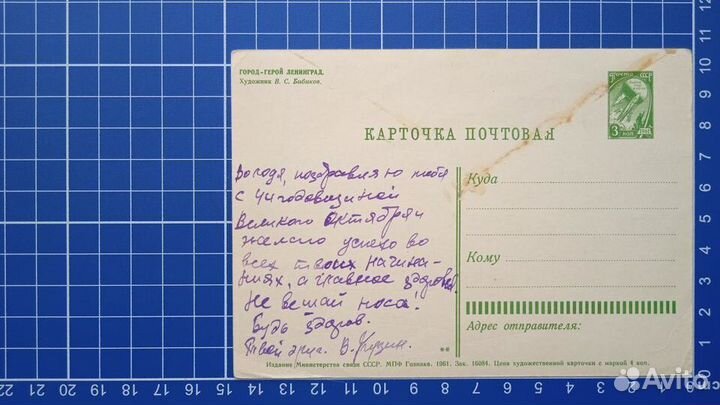 ГОРОД-ГЕРОЙ ЛЕНИНГРАД.
Художник В. С. Бибиков.
ПОЧТА СССР
3 КОП
КАРТОЧКА ПОЧТОВАЯ
Володя, поздравляю тебя
с 44 годовщиной
Великого Октября и
желаю успехов во
всех твоих начина-
ниях, а главное здоровья.
Не вешай носа!
Будь здоров.
Твой друг. В.
Куда
Кому
Адрес отправителя:
**
Издание Министерства связи СССР. МПФ Гознака. 1961. Зак. 16084. Цена художественной карточки с маркой 4 коп.
12
11
10
9
8
7
6
5
4
3
2
1
0
22 21 20 19 18 17 16 15 14 13 12 11 10 9 8 7 6 5 4 3 2 1 0
Avito